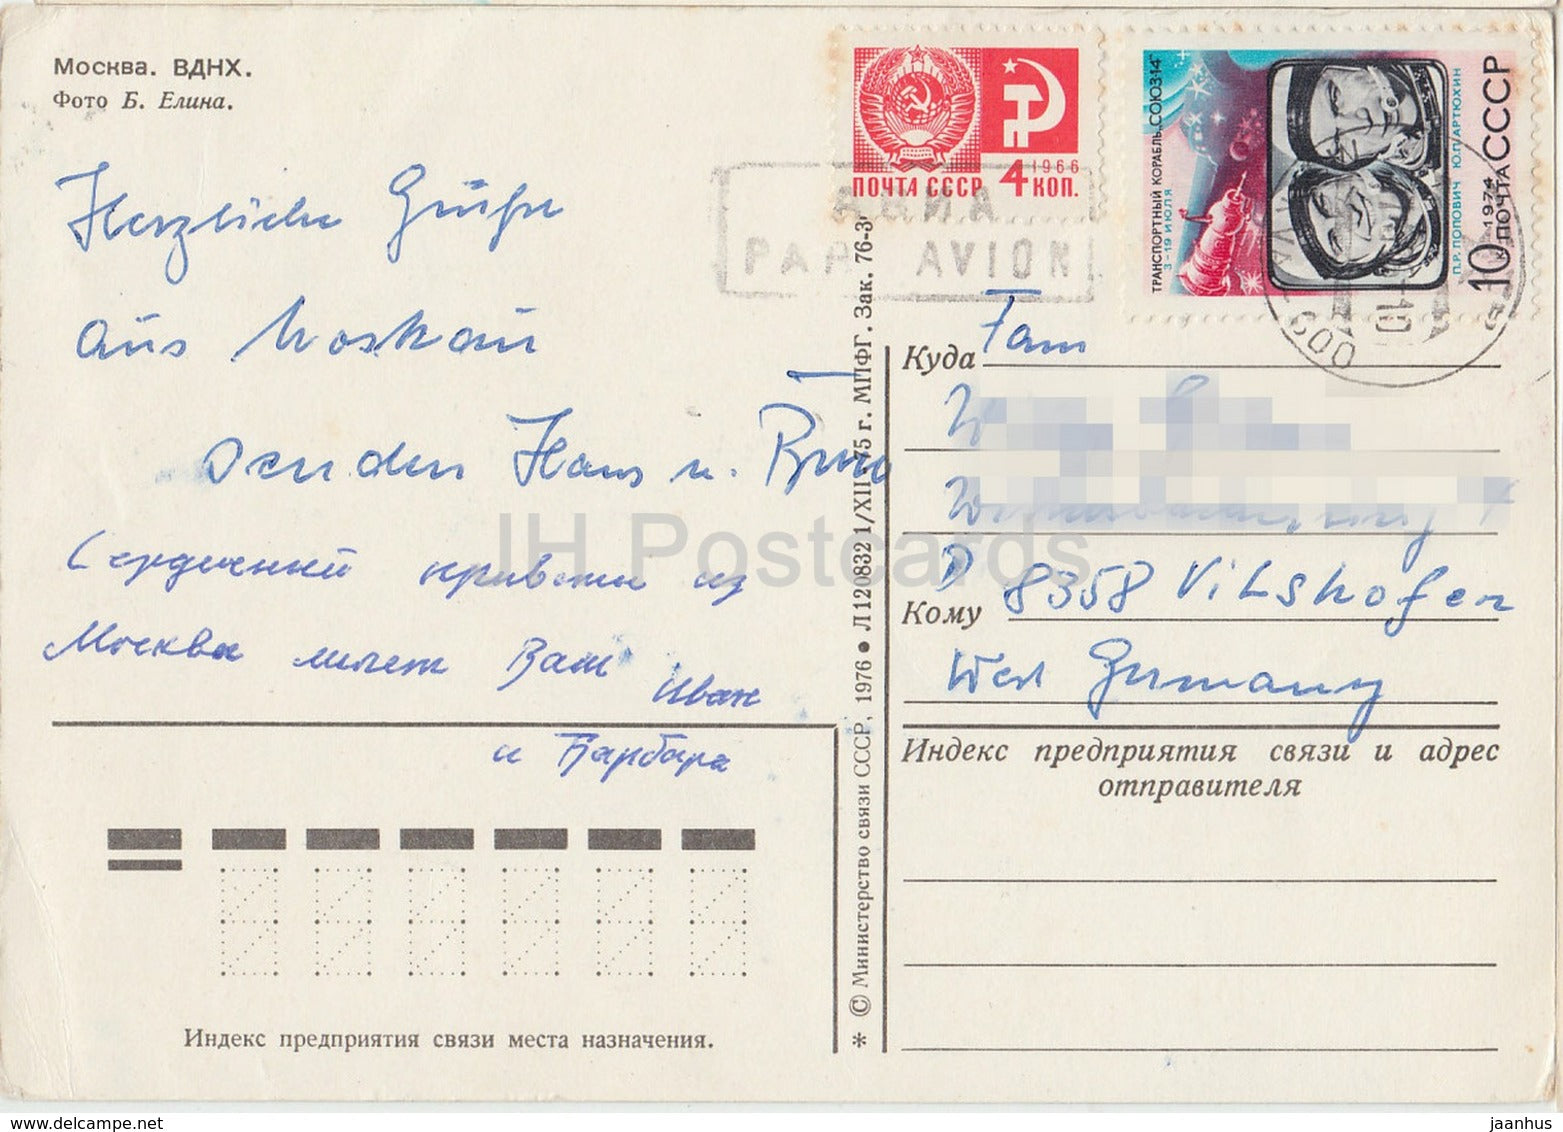 Москва. ВДНХ.
Фото Б. Елина.
Herzliche Grüße
aus Moskau
senden Hans u.
Сердечный приветы из
Москва шлет Вам Иван
и Барбара
Индекс предприятия связи места назначения.
* © Министерство связи СССР, 1976 ● Л 120832 1/XII-75 г. МПФГ. Зак. 76-3
ПОЧТА СССР 4 КОП.
1966
АВИА
PAR AVION
ТРАНСПОРТНЫЙ КОРАБЛЬ „СОЮЗ-14"
3-19 ИЮЛЯ
П.Р. ПОПОВИЧ Ю.П. АРТЮХИН
10 1974 ПОЧТА СССР
600
Куда Fam
D 8358 Vilshofen
Кому
West Germany
Индекс предприятия связи и адрес
отправителя
JH Postcards
www.delcampe.net
jaanhus